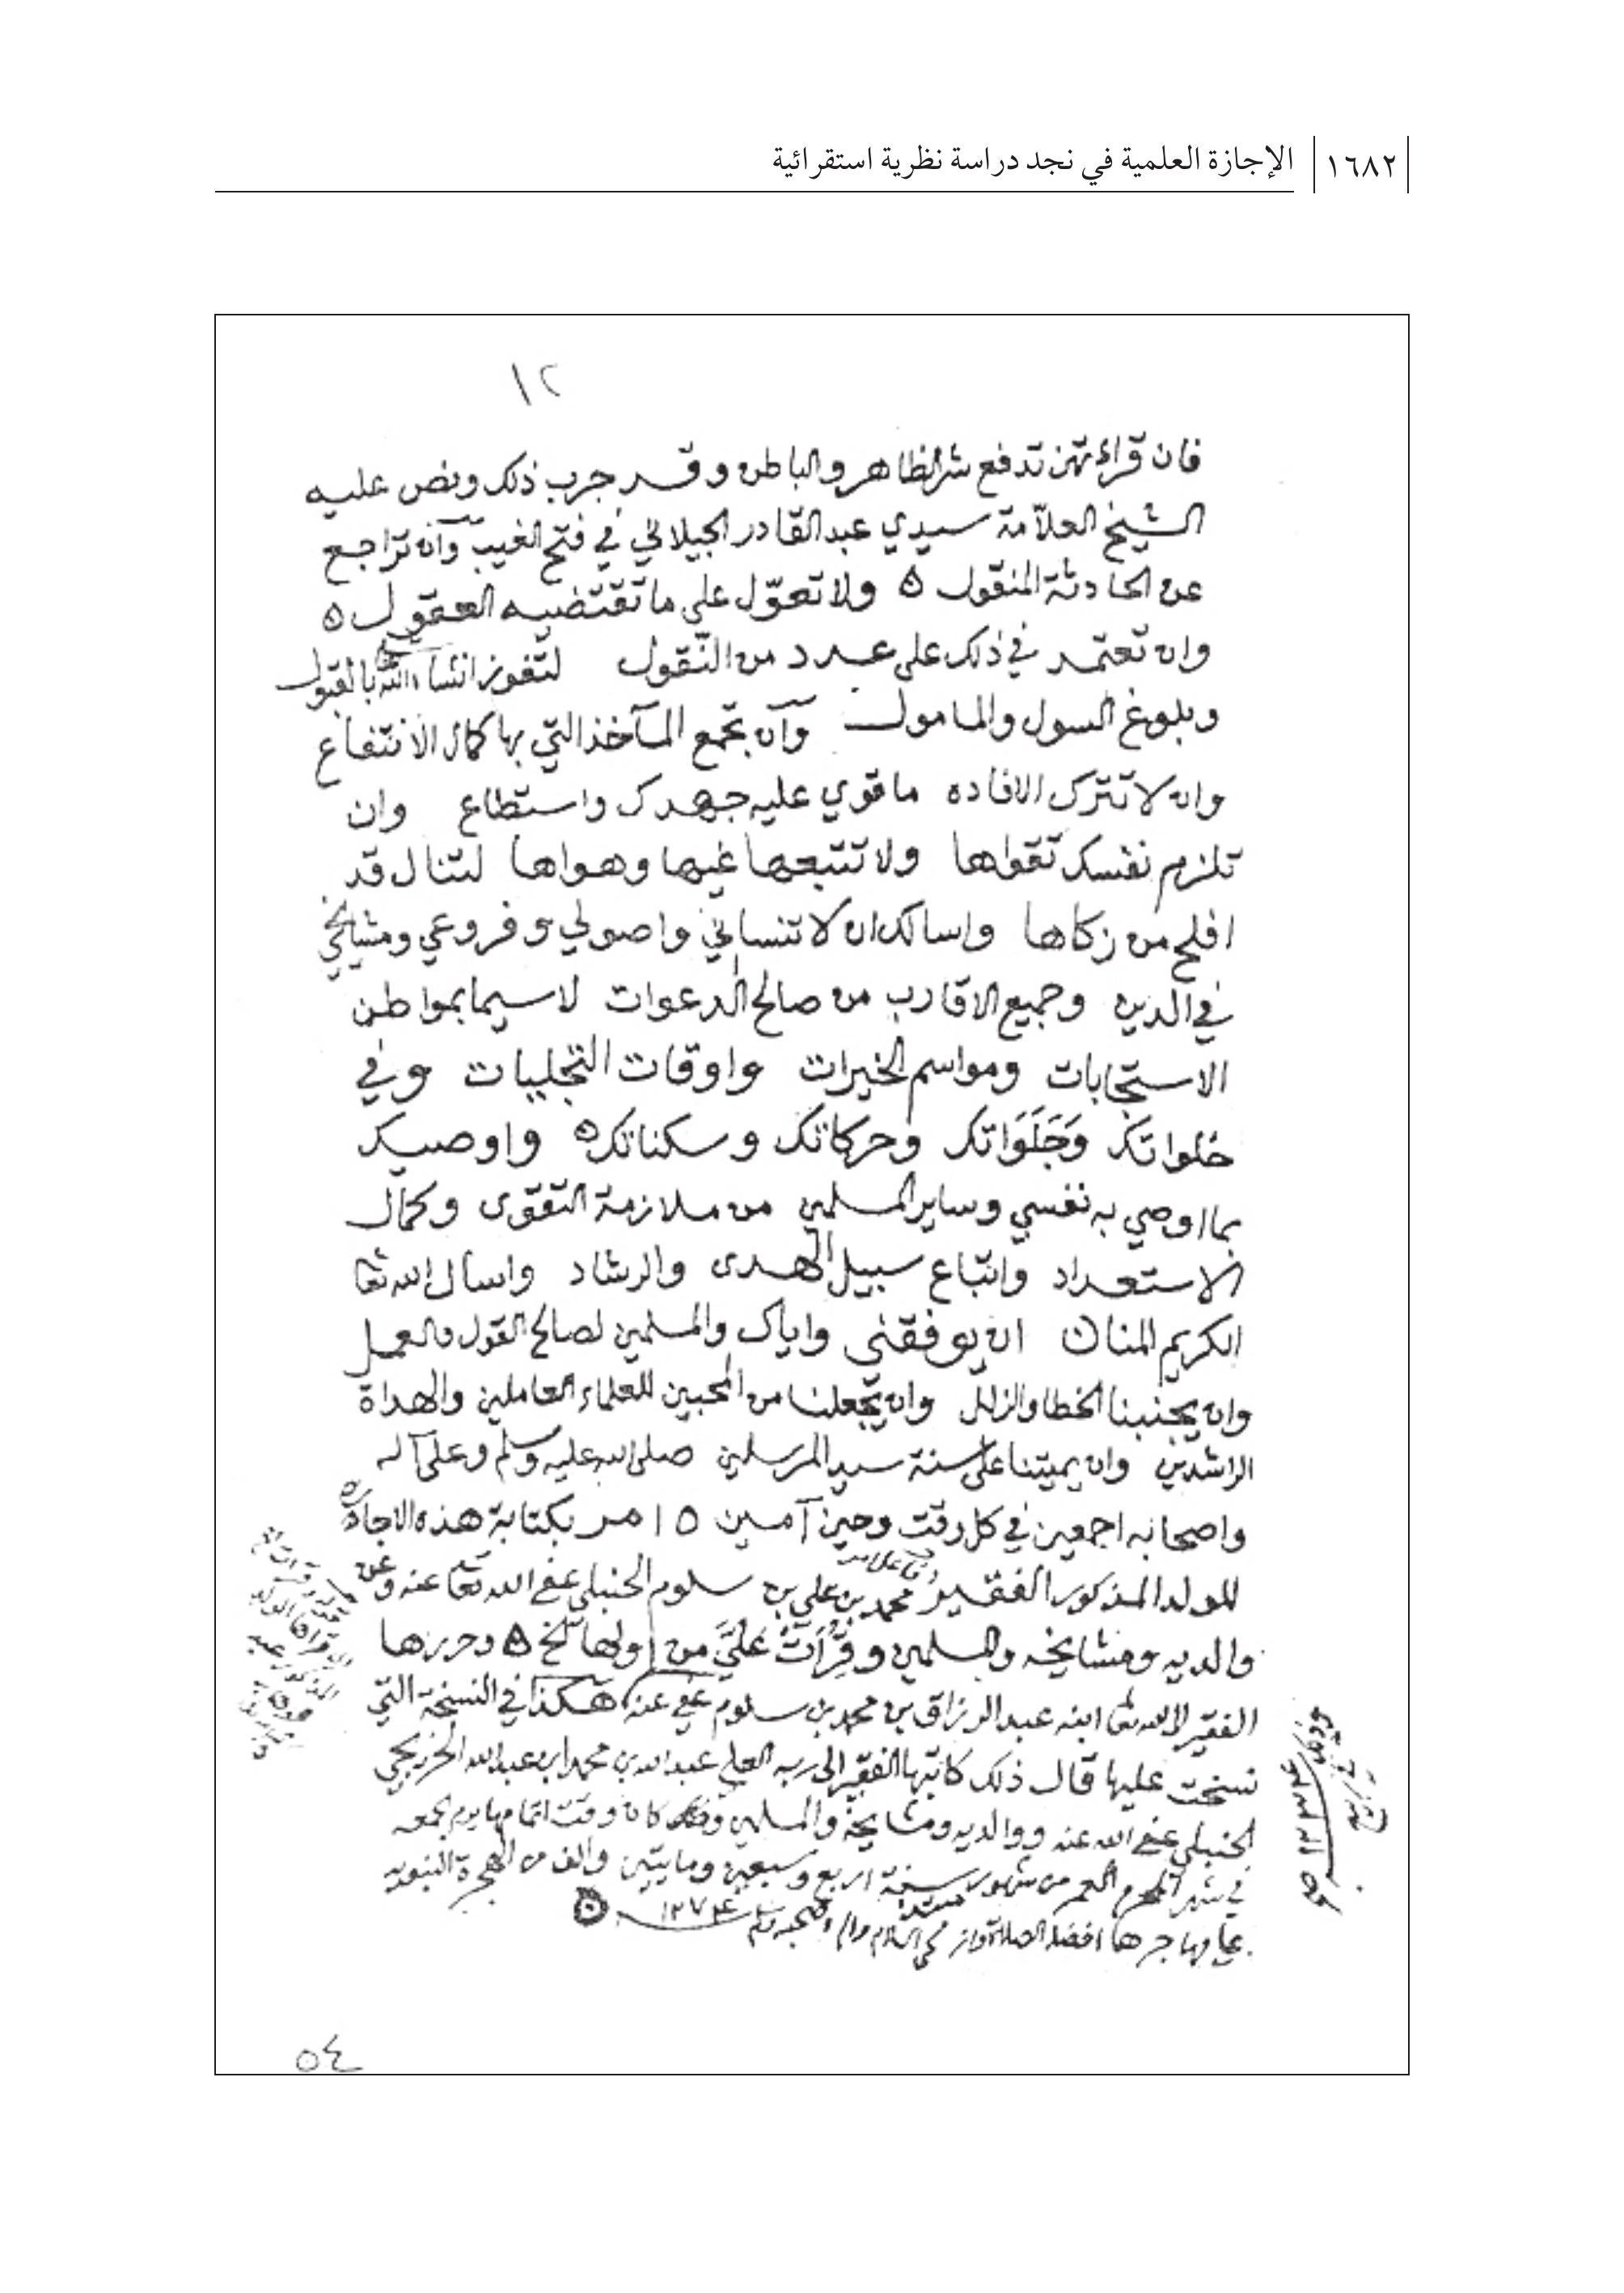 ١٦٨٢ الإجازة العلمية في نجد دراسة نظرية استقرائية
١٢
فان قراءتهن تدفع شر الظاهر والباطن وقد جرب ذلك ونص عليه
الشيخ العلّامة سيدي عبد القادر الجيلاني في فتح الغيب وآن تراجع
عن الحادثة المنقول ٥ ولا تعوّل على ما تقتضيه العقول ٥
وان تعتمد في ذلك على عدد من النّقول لتفوز انشاء الله بالقبول
وبلوغ السول والمامول وآن تجمع المآخذ التي بها كمال الانتفاع
وان لا تترك الافاده ما قوي عليه جهدك واستطاع وان
تلزم نفسك تقواها ولا تتبعها غيها وهواها لتنال قد
افلح من زكاها واسالك ان لا تنساني واصولي وفروعي ومشايخي
في الدين وجميع الاقارب من صالح الدعوات لاسيما بمواطن
الاستجابات ومواسم الخيرات واوقات التجليات وفي
خلواتك وَجَلَوَاتك وحركاتك وسكناتك ٥ واوصيك
بما اوصي به نفسي وساير المسلمين من ملازمة التقوى وكمال
الاستعداد واتباع سبيل الهدى والرشاد واسال الله تعا
الكريم المنان ان يوفقني واياك والمسلمين لصالح القول والعمل
وان يجنبنا الخطا والزلل وان يجعلنا من المحبين للعلماء العاملين والهداة
الراشدين وان يميتنا على سنة سيد المرسلين صلى الله عليه وسلم وعلى آله
واصحابه اجمعين في كل وقت وحين آمين ٥ امر بكتابة هذه الاجازة
للولد المذكور الفقير محمد بن علي بن سلوم الحنبلي عفى الله تعا عنه وعن
والديه ومشايخه والمسلمين وقُرِأَتْ عَليَّ من اولها الخ ٥ وحررها
الفقير لله تعا ابنه عبد الرزاق بن محمد بن سلوم عفي عنه هكذا في النسخة التي
نسخت عليها قال ذلك كاتبها الفقير الى ربه العلي عبد الله بن محمد ابن عبد الله الخريجي
الحنبلي عفى الله عنه ووالديه ومشايخه والمسلمين وكان وقت اتمامها يوم الجمعه
في شهر المحرم من شهور سنة اربع وسبعين ومايتين والف من الهجرة النبويه
على مهاجرها افضل الصلاة والسلام وصحبه وسلم ١٢٧٤
٥٤